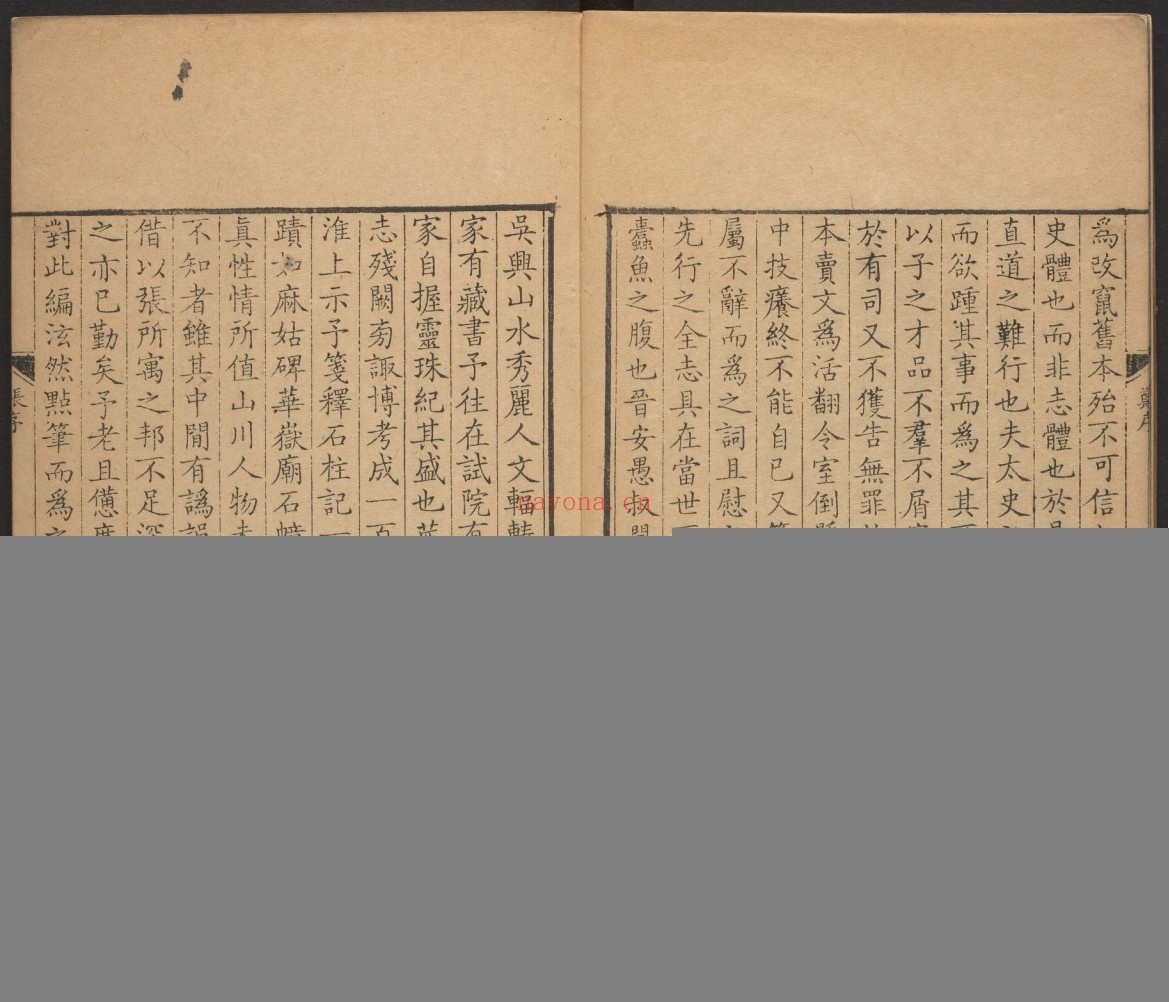 爲改竄舊本殆不可信
史體也而非志體也於
直道之難行也夫太史
而欲踵其事而爲之其
以子之才品不羣不屑
於有司又不獲告無罪
本賣文爲活翻令室倒
中技癢終不能自已又
屬不辭而爲之詞且慰
先行之全志具在當世
蠹魚之腹也晉安愚叔
吳興山水秀麗人文輻
家有藏書予往在試院有
家自握靈珠紀其盛也
志殘闕旁諏博考成一百
淮上示予箋釋石柱記一
蹟如麻姑碑華嶽廟石
眞性情所值山川人物
不知者雖其中閒有譌
借以張所寓之邦不足
之亦已勤矣予老且憊
對此編泫然點筆而爲
張序
nayona.cn